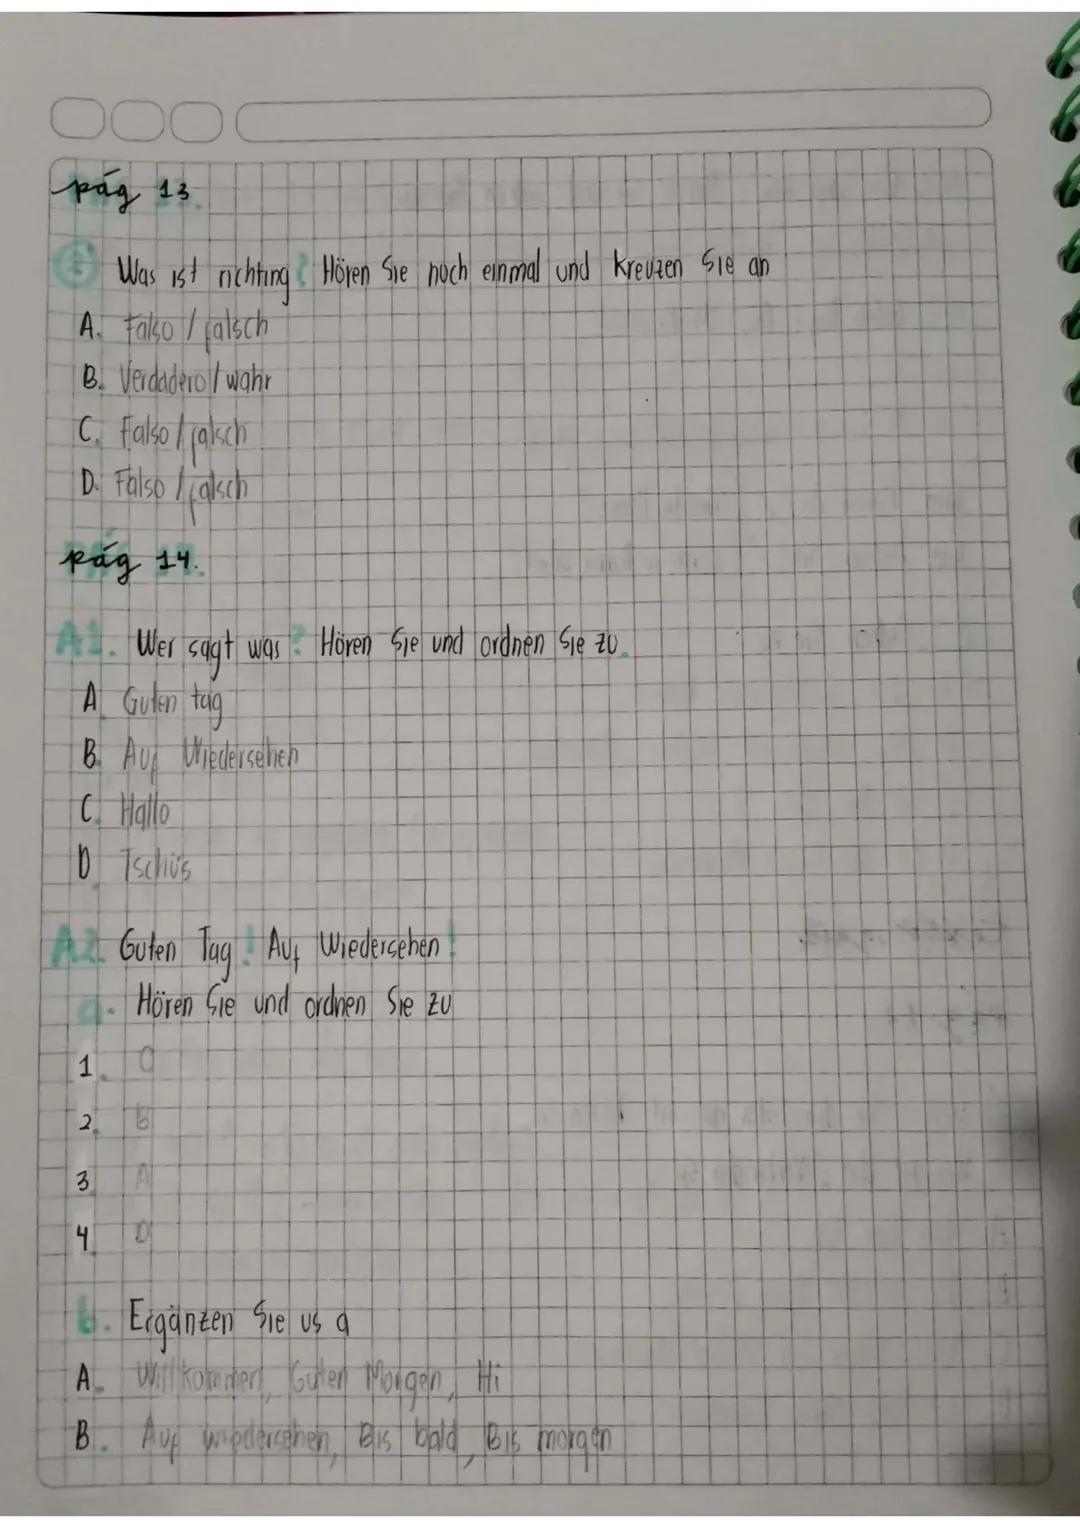 pág 13.
Was ist richting? Hören Sie noch einmal und kreuzen Sie an
A. Falso / falsch
B. Verdadero / wahr
C. Falso / falsch
D. Falso / falsch
pág 14.
A1. Wer sagt was? Hören Sie und ordnen Sie zu.
A. Guten tag
B. Auf Wiedersehen
C. Hallo
D. Tschüs
A2. Guten Tag! Auf Wiedersehen!
a. Hören Sie und ordnen Sie zu
1. C
2. B
3. A
4. D
b. Ergänzen Sie us a
A. Willkommen, Guten Morgen, Hi
B. Auf wiedersehen, Bis bald, Bis morgen